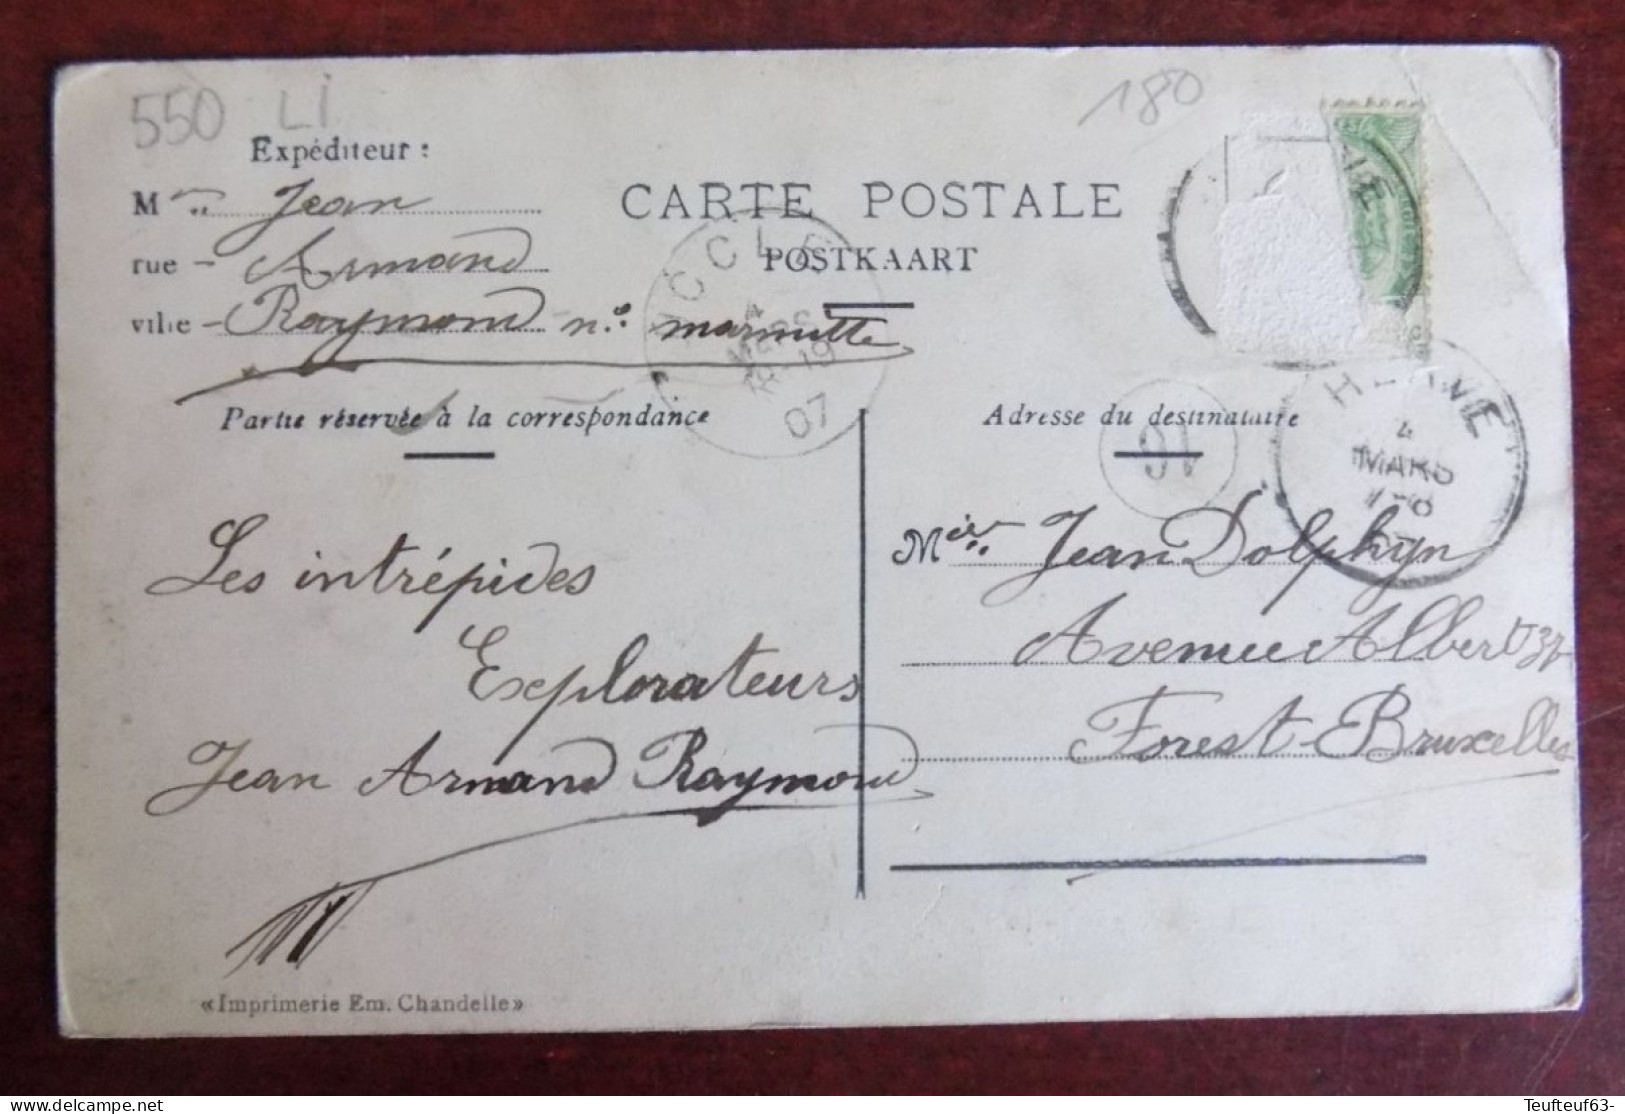 550 LI
180
Expéditeur :
CARTE POSTALE
POSTKAART
M Jean
rue - Armand
ville - Raymond n° marmitte
UCCLE
4
MARS
18-19
07
Partie réservée à la correspondance
Adresse du destinataire
4
MARS
Les intrépides
Explorateurs
Jean Armand Raymond
Jean Dolphyn
Avenue Albert
Forest-Bruxelles
«Imprimerie Em. Chandelle»
Teufteuf63-